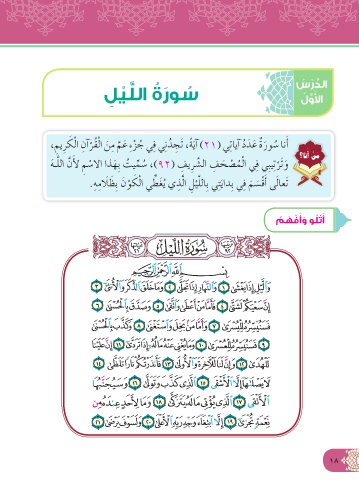 الدَّرْسُ
الأَوَّلُ
سُورَةُ اللَّيْلِ
مَنْ أَنَا؟
أَنَا سُورَةٌ عَدَدُ آيَاتِي (٢١) آيَةً، تَجِدُنِي فِي جُزْءِ عَمَّ مِنَ الْقُرْآنِ الْكَرِيمِ،
وَتَرْتِيبِي فِي الْمُصْحَفِ الشَّرِيفِ (٩٢)، سُمِّيتُ بِهَذَا الِاسْمِ لأَنَّ اللَّهَ
تَعَالَى أَقْسَمَ فِي بِدَايَتِي بِاللَّيْلِ الَّذِي يُغَطِّي الْكَوْنَ بِظَلَامِهِ.
أَتْلُو وَأَفْهَمُ
سُورَةُ اللَّيْلِ
بِسْمِ اللَّهِ الرَّحْمَٰنِ الرَّحِيمِ
وَالَّيْلِ إِذَا يَغْشَىٰ ١ وَالنَّهَارِ إِذَا تَجَلَّىٰ ٢ وَمَا خَلَقَ الذَّكَرَ وَالْأُنثَىٰ ٣
إِنَّ سَعْيَكُمْ لَشَتَّىٰ ٤ فَأَمَّا مَنْ أَعْطَىٰ وَاتَّقَىٰ ٥ وَصَدَّقَ بِالْحُسْنَىٰ ٦
فَسَنُيَسِّرُهُ لِلْيُسْرَىٰ ٧ وَأَمَّا مَنْ بَخِلَ وَاسْتَغْنَىٰ ٨ وَكَذَّبَ بِالْحُسْنَىٰ
٩ فَسَنُيَسِّرُهُ لِلْعُسْرَىٰ ١٠ وَمَا يُغْنِي عَنْهُ مَالُهُ إِذَا تَرَدَّىٰ ١١ إِنَّ عَلَيْنَا
لَلْهُدَىٰ ١٢ وَإِنَّ لَنَا لَلْآخِرَةَ وَالْأُولَىٰ ١٣ فَأَنذَرْتُكُمْ نَارًا تَلَظَّىٰ ١٤
لَا يَصْلَاهَا إِلَّا الْأَشْقَى ١٥ الَّذِي كَذَّبَ وَتَوَلَّىٰ ١٦ وَسَيُجَنَّبُهَا
الْأَتْقَى ١٧ الَّذِي يُؤْتِي مَالَهُ يَتَزَكَّىٰ ١٨ وَمَا لِأَحَدٍ عِندَهُ مِن
نِّعْمَةٍ تُجْزَىٰ ١٩ إِلَّا ابْتِغَاءَ وَجْهِ رَبِّهِ الْأَعْلَىٰ ٢٠ وَلَسَوْفَ يَرْضَىٰ ٢١
١٨